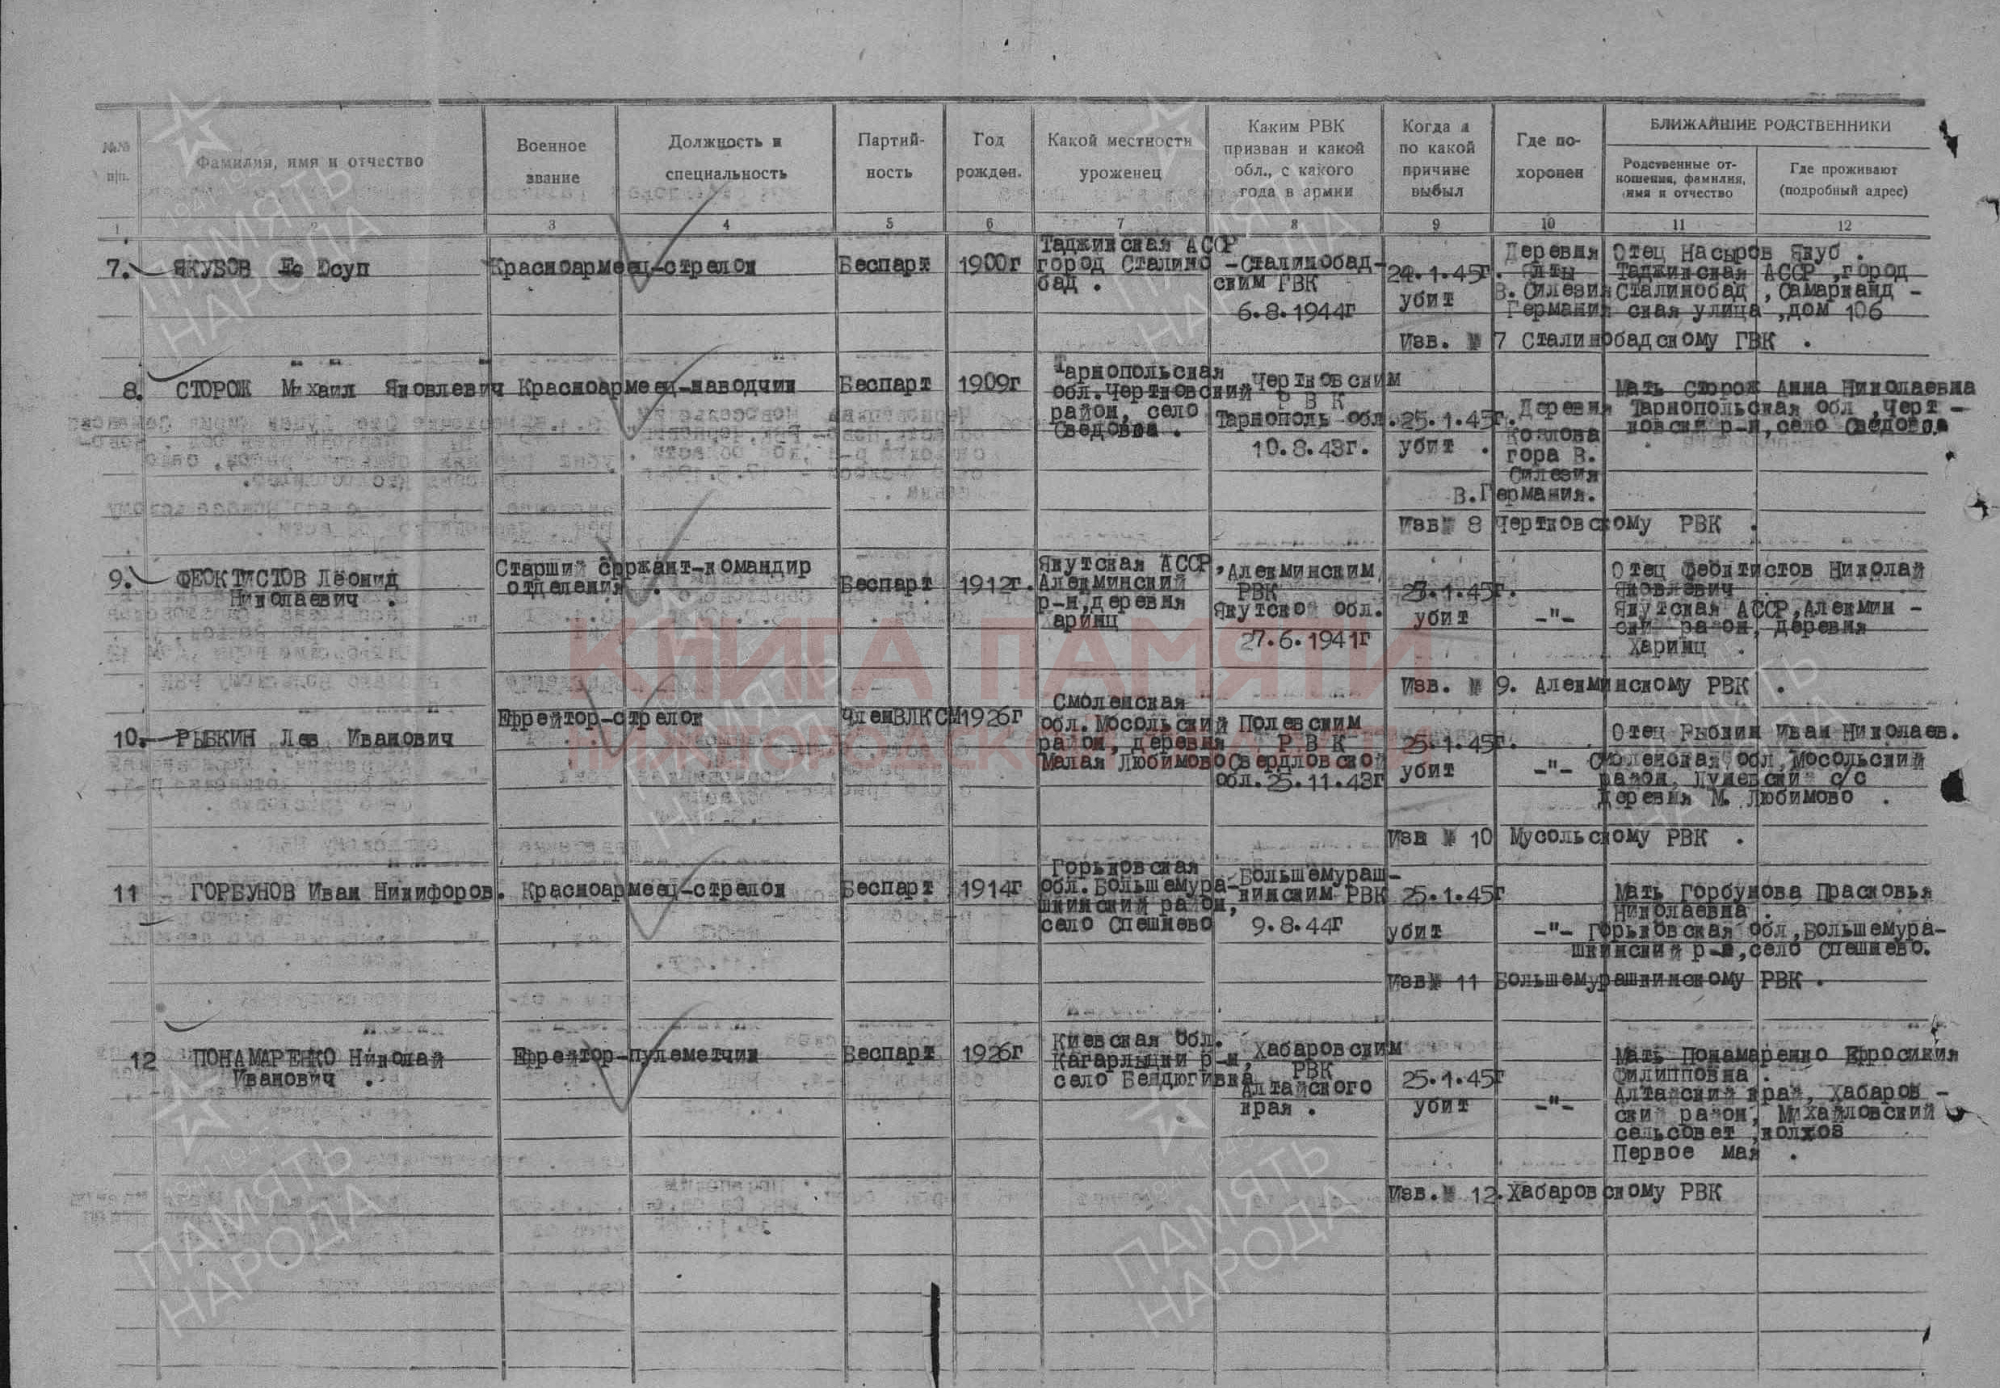 №№ п/п.
Фамилия, имя и отчество
Военное звание
Должность и специальность
Партий-
ность
Год рожден.
Какой местности уроженец
Каким РВК
призван и какой
обл., с какого
года в армии
Когда и
по какой
причине
выбыл
Где по-
хоронен
БЛИЖАЙШИЕ РОДСТВЕННИКИ
Родственные от-
ношения, фамилия,
имя и отчество
Где проживают
(подробный адрес)
1 2 3 4 5 6 7 8 9 10 11 12
7. ЯКУБОВ Юсуп
Красноармеец-стрелок
Беспарт
1900г
Таджикская АССР
город Сталино
бад .
-Сталинобад-
ским ГВК
6.8.1944г
24.1.45г.
убит
Деревня
Элты
В.Силезия
Германия
Отец Насыров Якуб .
Таджикская АССР ,город
Сталинобад ,Самарканд -
ская улица ,дом 106
Изв. № 7 Сталинобадскому ГВК .
8. СТОРОЖ Михаил Яковлевич
Красноармеец-наводчик
Беспарт
1909г
Тарнопольская
обл.Чертковский
район, село
Сведовка .
Чертковским
РВК
Тарнополь обл.
10.8.43г.
25.1.45г.
убит .
Деревня
Козлова
гора В.
Силезия
В.Германия.
Мать Сторож Анна Николаевна
Тарнопольская обл ,Черт -
ковский р-н,село Сведовка
Изв№ 8 Чертковскому РВК .
9. ФЕОКТИСТОВ Леонид
Николаевич .
Старший сержант-командир
отделения .
Беспарт
1912г.
Якутская АССР,
Алекминский
р-н,деревня
Харинц
Алекминским
РВК
Якутской обл.
27.6.1941г
23.1.45г.
убит
-"-
Отец Феоктистов Николай
Яковлевич
Якутская АССР,Алекмин -
ский район, деревня
Харинц .
Изв. № 9. Алекминскому РВК .
10. РЫБКИН Лев Иванович
Ефрейтор-стрелок
ЧленВЛКСМ
1926г
Смоленская
обл.Мосольский
район, деревня
Малая Любимово
Полевским
РВК
Свердловской
обл.25.11.43г
25.1.45г.
убит
-"-
Отец Рыбкин Иван Николаев.
Смоленская обл,Мосольский
район, с/с
деревня М. Любимово .
Изв № 10 Мусольскому РВК .
11 ГОРБУНОВ Иван Никифоров.
Красноармеец-стрелок
Беспарт
1914г
Горьковская
обл.Большемура-
шкинский район,
село Спешнево
Большемураш-
кинским РВК
9.8.44г
25.1.45г
убит
-"-
Мать Горбунова Прасковья
Николаевна .
Горьковская обл,Большемура-
шкинский р-н,село Спешнево.
Изв№ 11 Большемурашкинскому РВК .
12 ПОНАМАРЕНКО Николай
Иванович .
Ефрейтор-пулеметчик
Беспарт
1926г
Киевская обл.
Кагарлыцки р-н,
село Бендюгивка
Хабаровским
РВК
Алтайского
края .
25.1.45г
убит
-"-
Мать Понамаренко Ефросиния
Филипповна .
Алтайский край, Хабаров -
ский район, Михайловский
сельсовет ,колхоз
Первое мая .
Изв.№ 12.Хабаровскому РВК
КНИГА ПАМЯТИ
НИЖЕГОРОДСКОЙ ОБЛАСТИ
1941-1945
ПАМЯТЬ
НАРОДА